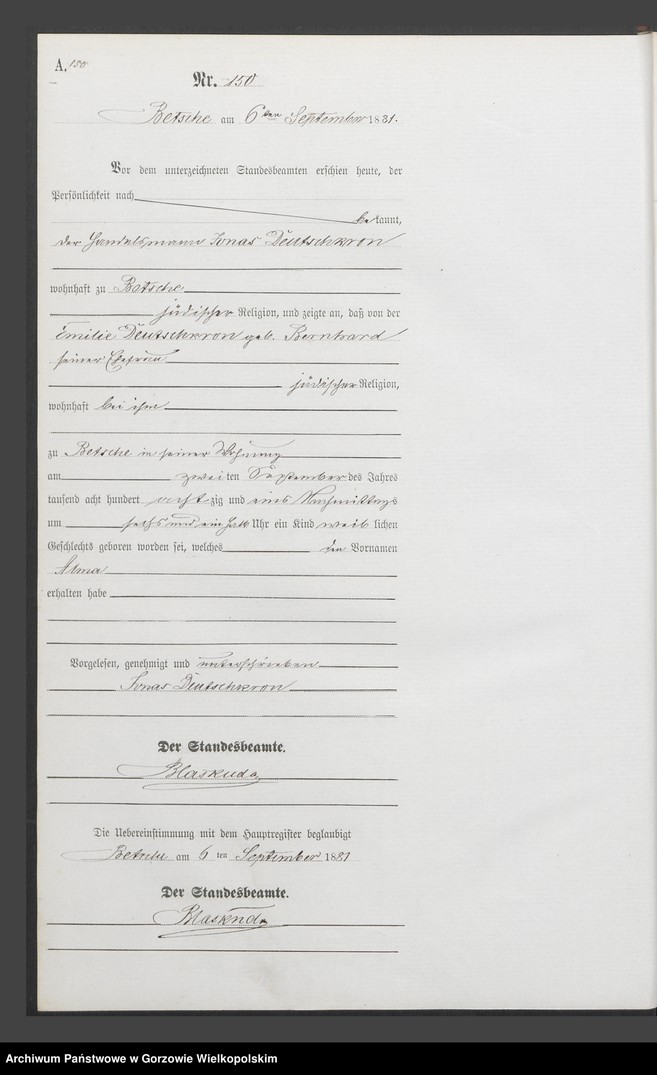 A. 150
Nr. 150
Betsche am 6ten September 1881.
Vor dem unterzeichneten Standesbeamten erschien heute, der
Persönlichkeit nach
bekannt,
der Handelsmann Jonas Deutschkron
wohnhaft zu Betsche
jüdischer Religion, und zeigte an, daß von der
Emilie Deutschkron geb. Bernhard
seiner Ehefrau
jüdischer Religion,
wohnhaft bei ihm
zu Betsche in seiner Wohnung
am zweiten September des Jahres
tausend acht hundert achtzig und eins Nachmittags
um sechs und ein halb Uhr ein Kind weiblichen
Geschlechts geboren worden sei, welches den Vornamen
Alma
erhalten habe
Vorgelesen, genehmigt und unterschrieben
Jonas Deutschkron
Der Standesbeamte.
Die Uebereinstimmung mit dem Hauptregister beglaubigt
Betsche am 6ten September 1881
Der Standesbeamte.
Archiwum Państwowe w Gorzowie Wielkopolskim